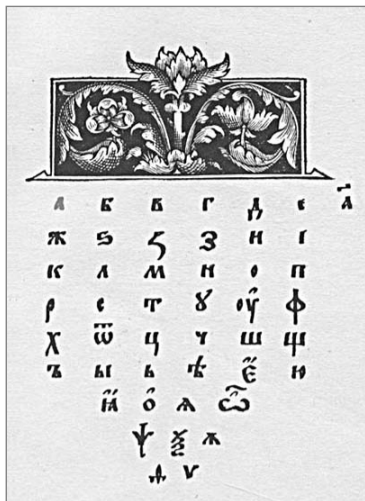 а б в г д е а҃
ж ѕ ꙁ з и і
к л м н о п
р с т ꙋ оу҆ ф
х ѿ ц ч ш щ
ъ ы ь ѣ є҆ ю
ꙗ҆ о҆ ѧ ѽ
ѱ ѯ ѫ
ѳ ѵ